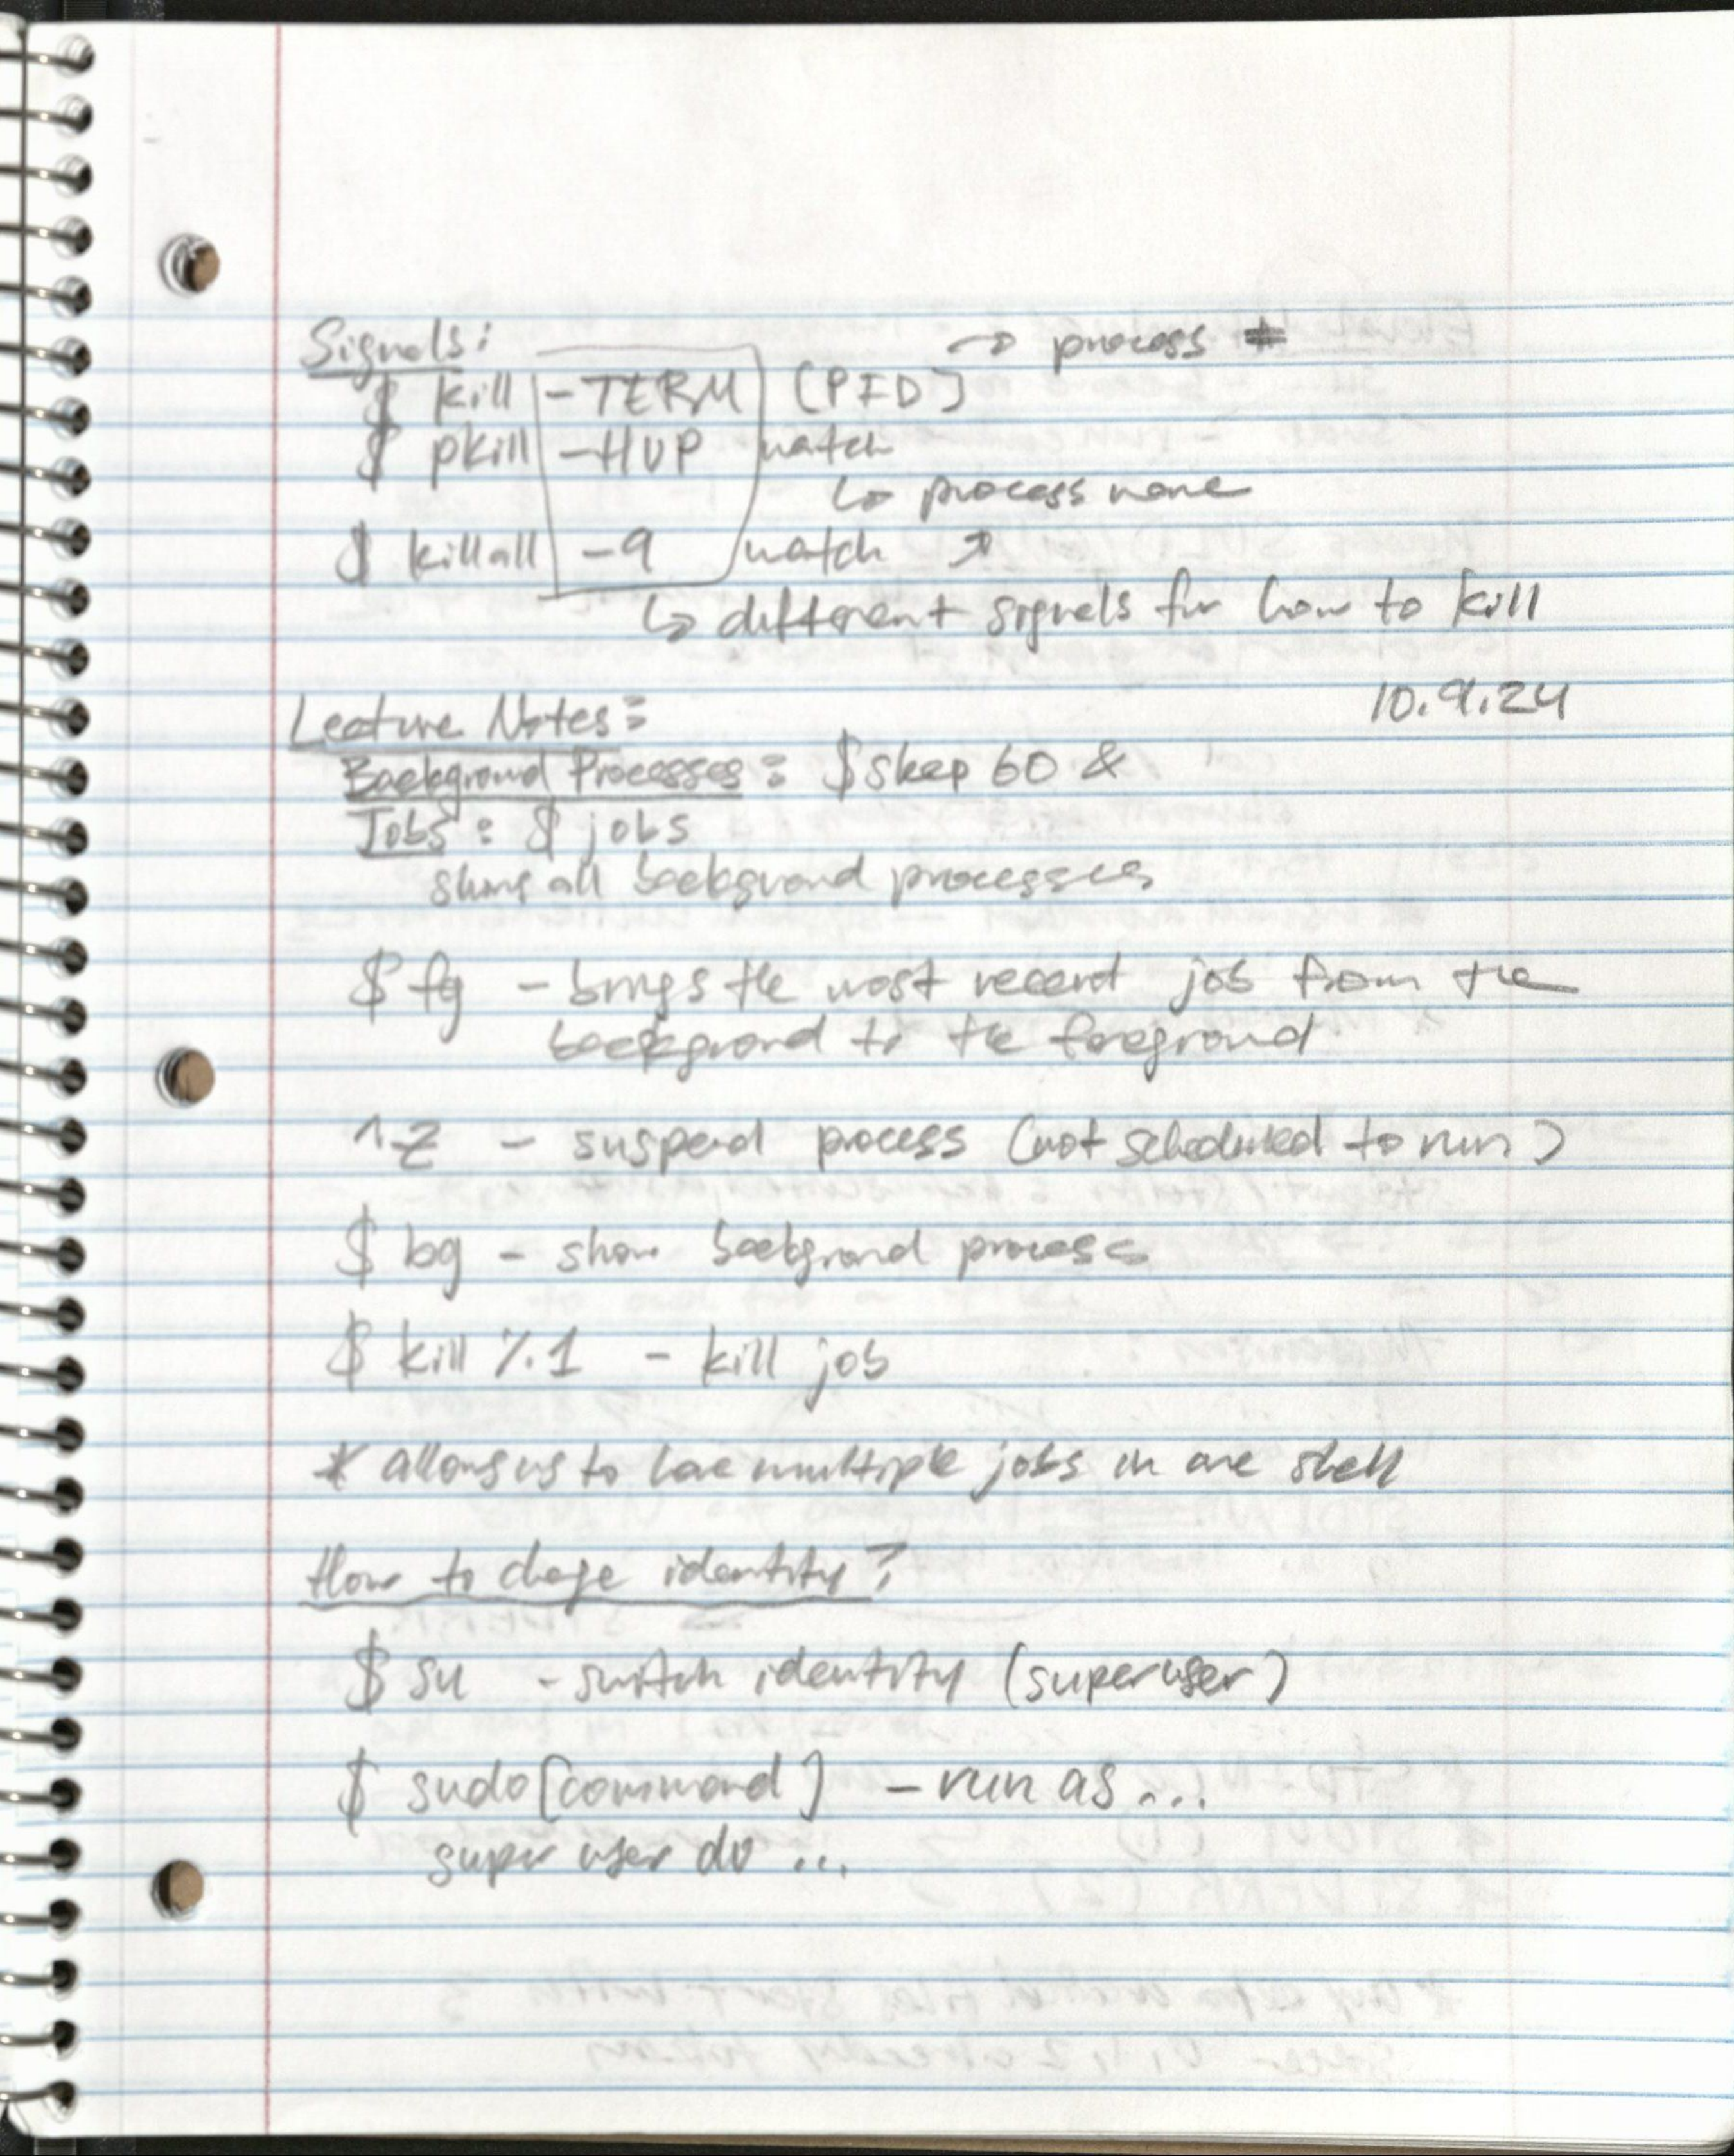 Signals:
→ process #
$ kill -TERM [PID]
$ pkill -HUP watch
↳ process name
$ killall -9 watch ↗
↳ different signals for how to kill
10.9.24
Lecture Notes:
Background Processes: $ sleep 60 &
Jobs: $ jobs
shows all background processes
$ fg - brings the most recent job from the
background to the foreground
^Z - suspend process (not scheduled to run)
$ bg - show background process
$ kill %1 - kill job
* allows us to have multiple jobs in one shell
How to change identity?
$ su - switch identity (superuser)
$ sudo [command] - run as...
super user do ...